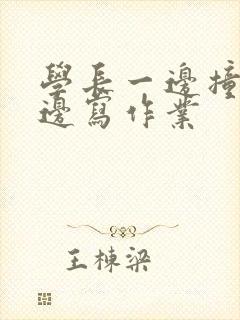 學長一邊撞
邊寫作業
王棟梁